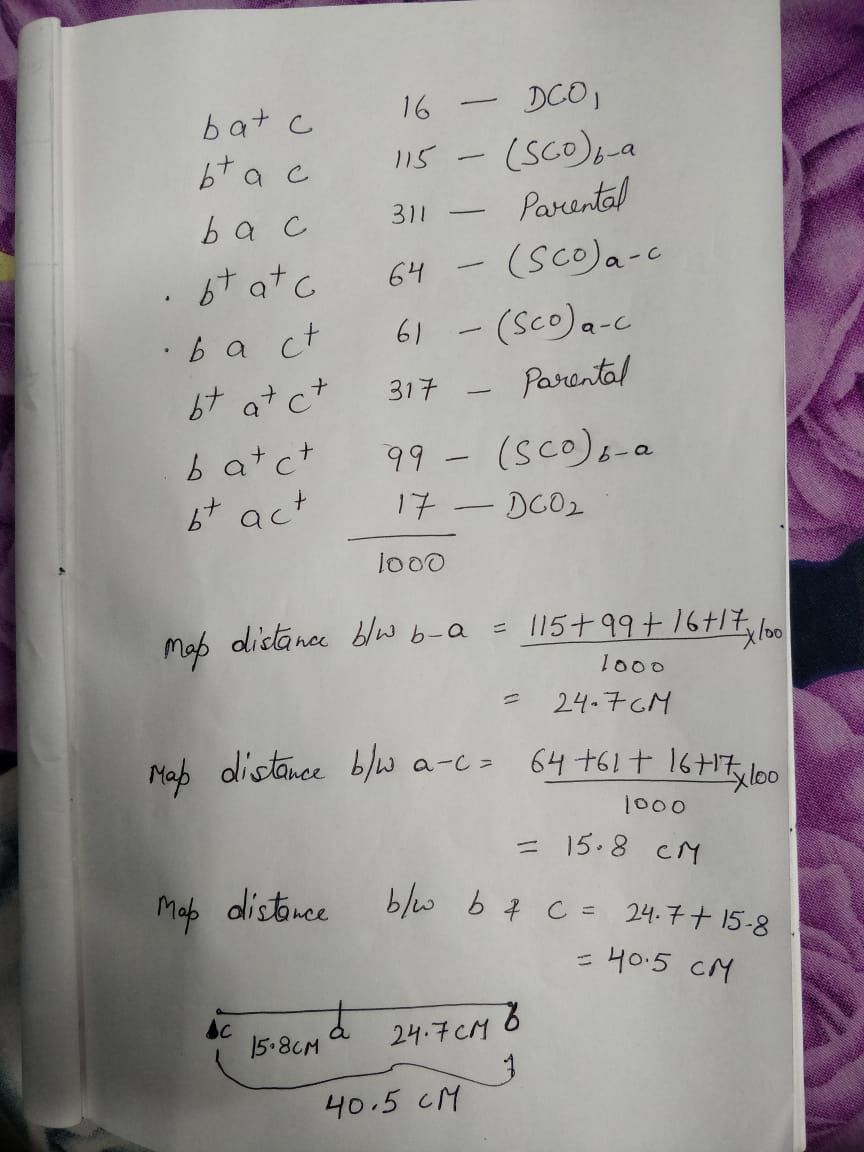 b a+ c 16 — DCO1
b+ a c 115 — (SCO)b-a
b a c 311 — Parental
. b+ a+ c 64 — (SCO)a-c
. b a c+ 61 — (SCO)a-c
b+ a+ c+ 317 — Parental
b a+ c+ 99 — (SCO)b-a
b+ a c+ 17 — DCO2
1000
Map distance b/w b-a = 115+99+16+17 x100
1000
= 24.7 CM
Map distance b/w a-c = 64+61+16+17 x100
1000
= 15.8 CM
Map distance b/w b & c = 24.7+15.8
= 40.5 CM
c a b
15.8CM 24.7CM
40.5 CM